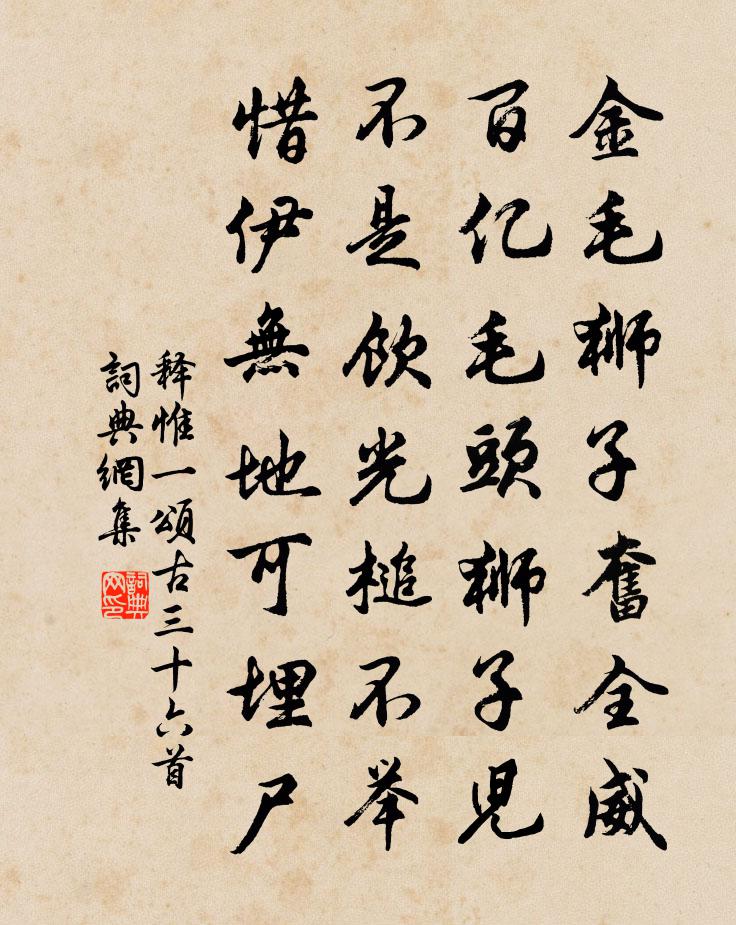 金毛獅子奮全威
百亿毛頭獅子児
不是飲光槌不举
惜伊無地可埋尸
释惟一頌古三十六首
詞典網集
詞典网印